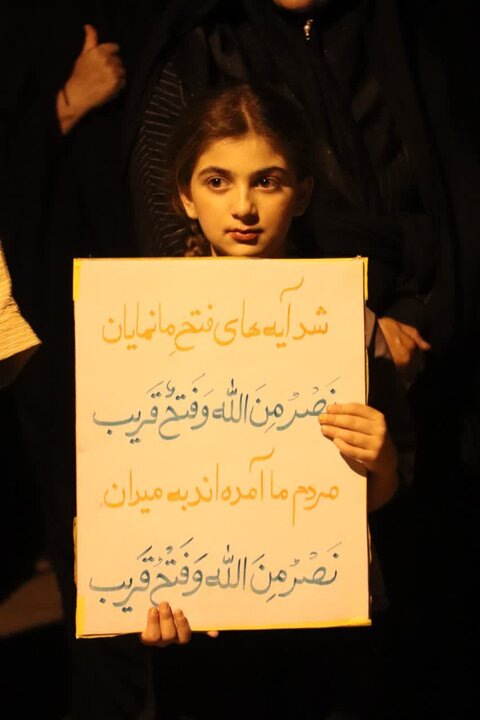 شد آیه های فتحِ ما نمایان
نَصْرٌ مِنَ اللّه وَفَتحٌ قَریب
مردم ما آمده اند به میدان
نَصْرٌ مِنَ اللّه وَفَتْحٌ قَریب